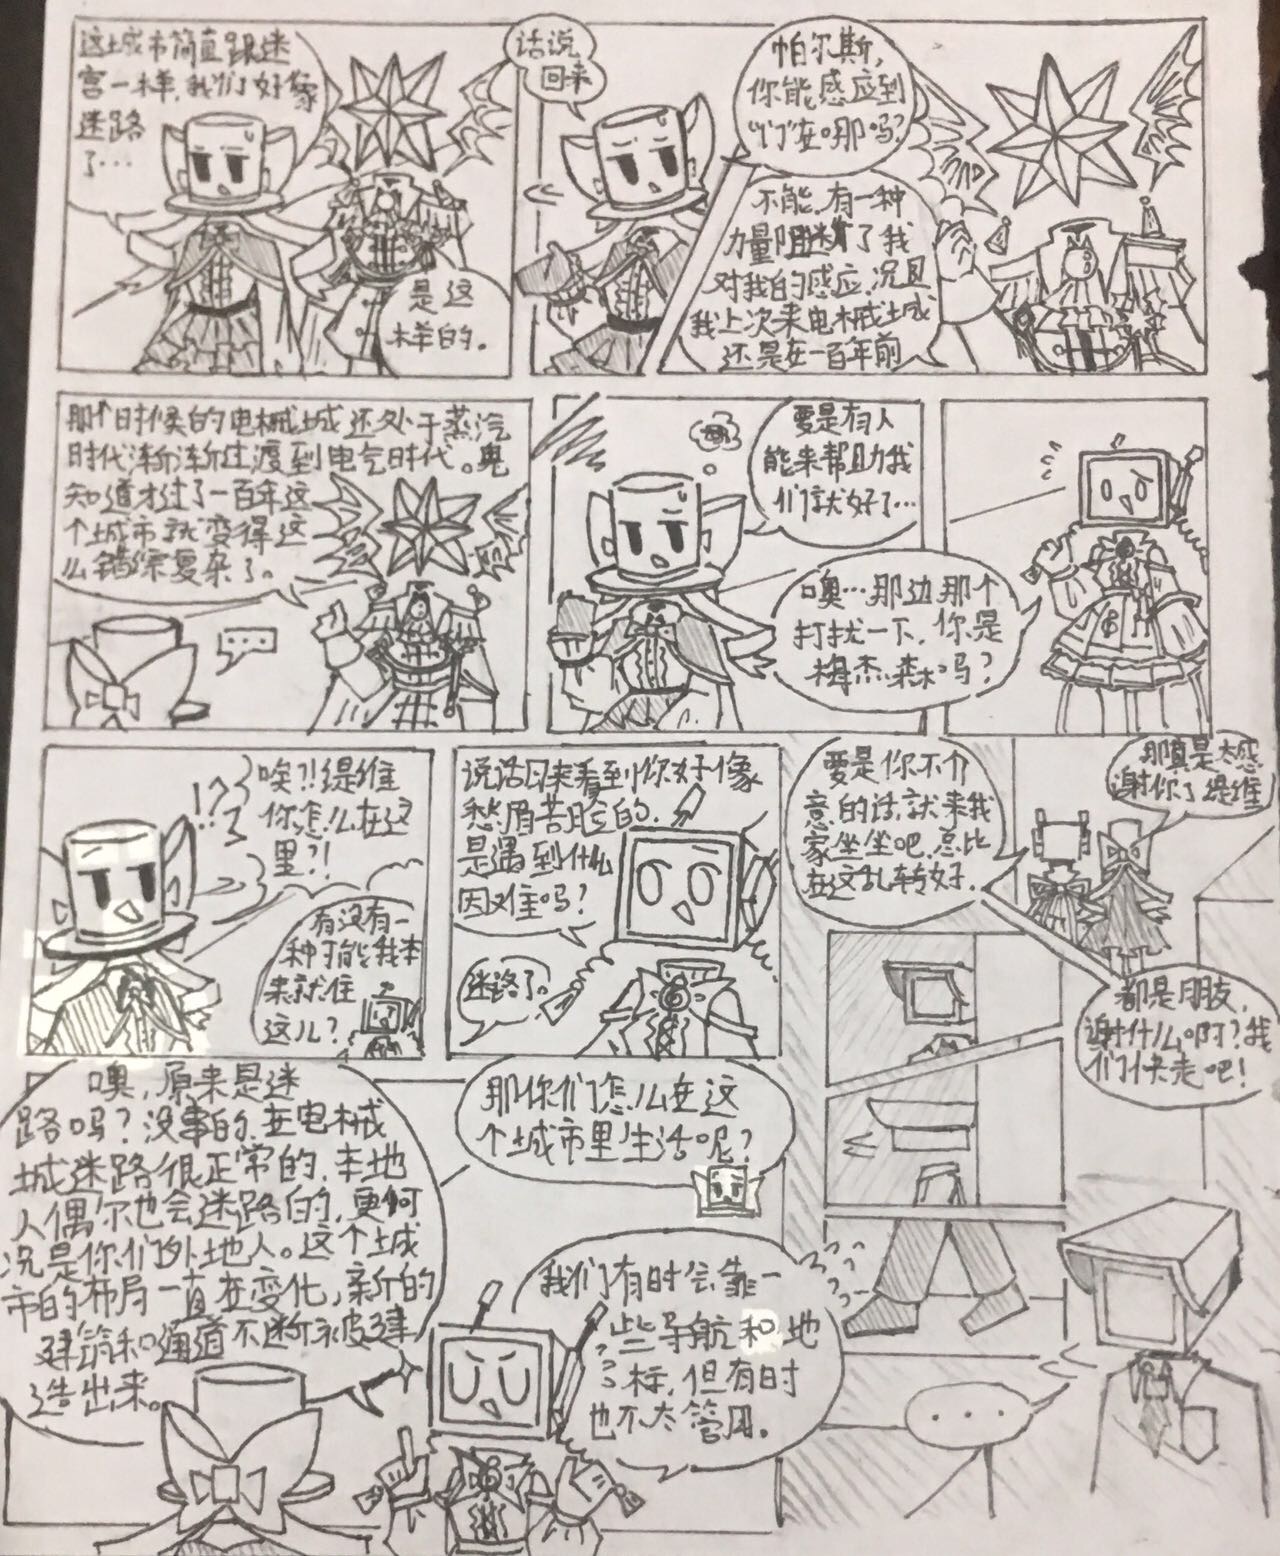 这城市简直跟迷
宫一样,我们好像
迷路
了…
是这
样的。
话说
回来
帕尔斯,
你能感应到
“门”在哪吗?
不能,有一种
力量阻断了我
对我的感应,况且
我上次来电械城
还是在一百年前
那个时候的电械城还处于蒸汽
时代渐渐过渡到电气时代。鬼
知道才过了一百年这
个城市就变得这
么错综复杂了。
....
要是有人
能来帮助我
们就好了…
噢…那边那个
打扰一下,你是
梅杰森吗?
!?
唉?!缇维
你怎么在这
里?!
有没有一
种可能我本
来就住
这儿?
说话回来看到你好像
愁眉苦脸的,
是遇到什么
困难吗?
迷路了。
要是你不介
意的话,就来我
家坐坐吧,总比
在这乱转好.
那真是太感
谢你了缇维
都是朋友,
谢什么啊?我
们快走吧!
噢,原来是迷
路吗?没事的,在电械
城迷路很正常的,本地
人偶尔也会迷路的,更何
况是你们外地人。这个城
市的布局一直在变化,新的
建筑和通道不断被建
造出来。
那你们怎么在这
个城市里生活呢?
我们有时会靠一
些导航和地
标,但有时
也不太管用。
...